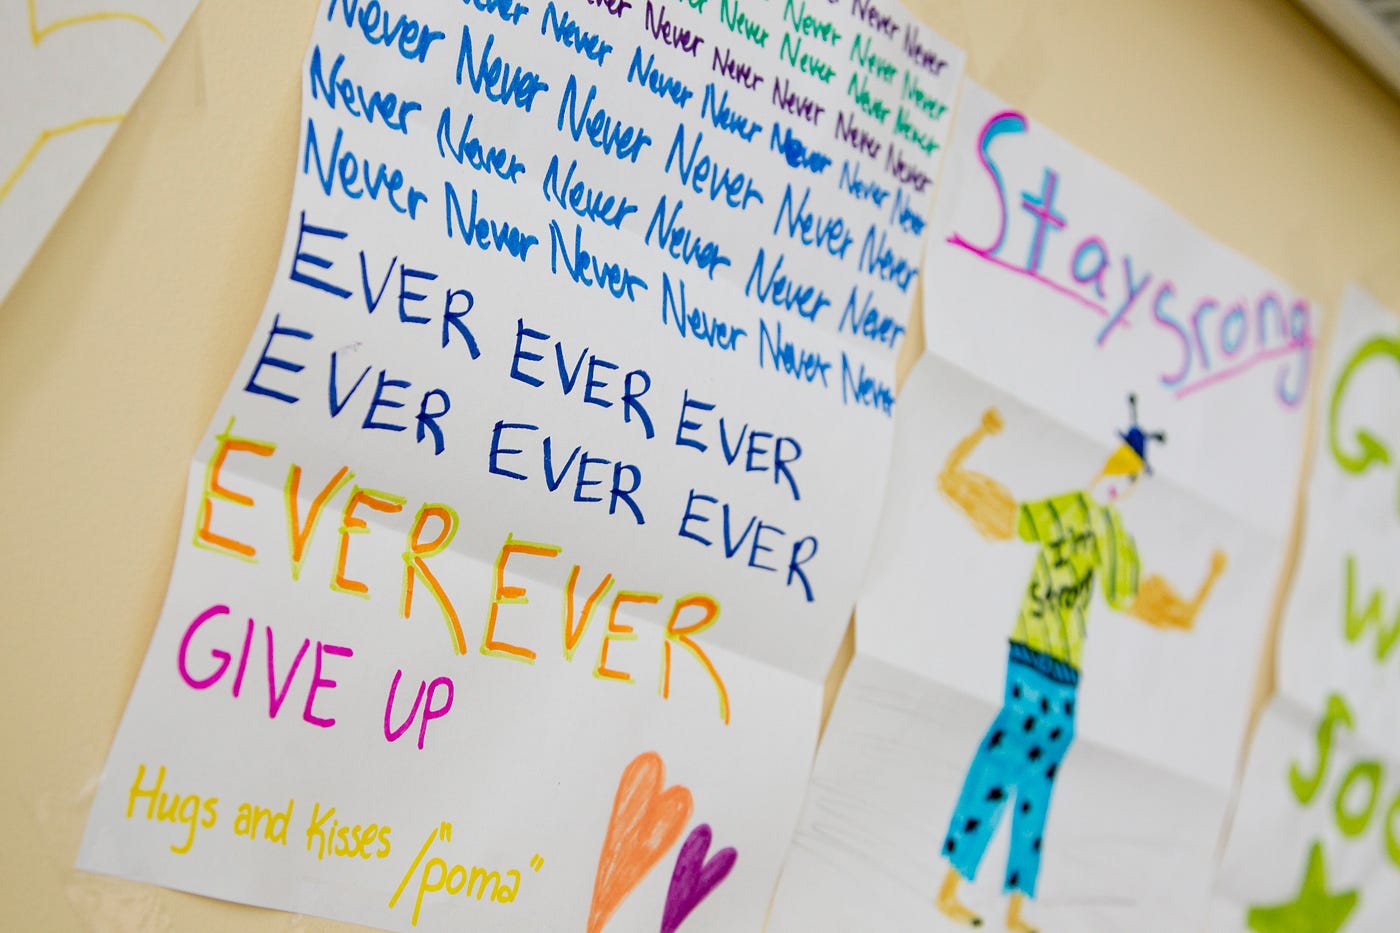 Never Never
Never Never Never
Never Never Never Never
Never Never Never Never Never Never
Never Never Never Never Never Never Never
Never Never Never Never Never Never
Never Never Never Never Never Never
Never Never Never Never Never Never
EVER EVER EVER
EVER EVER EVER
EVER EVER
GIVE UP
Hugs and Kisses /"poma"
Stay srong
I'm
strong
G
W